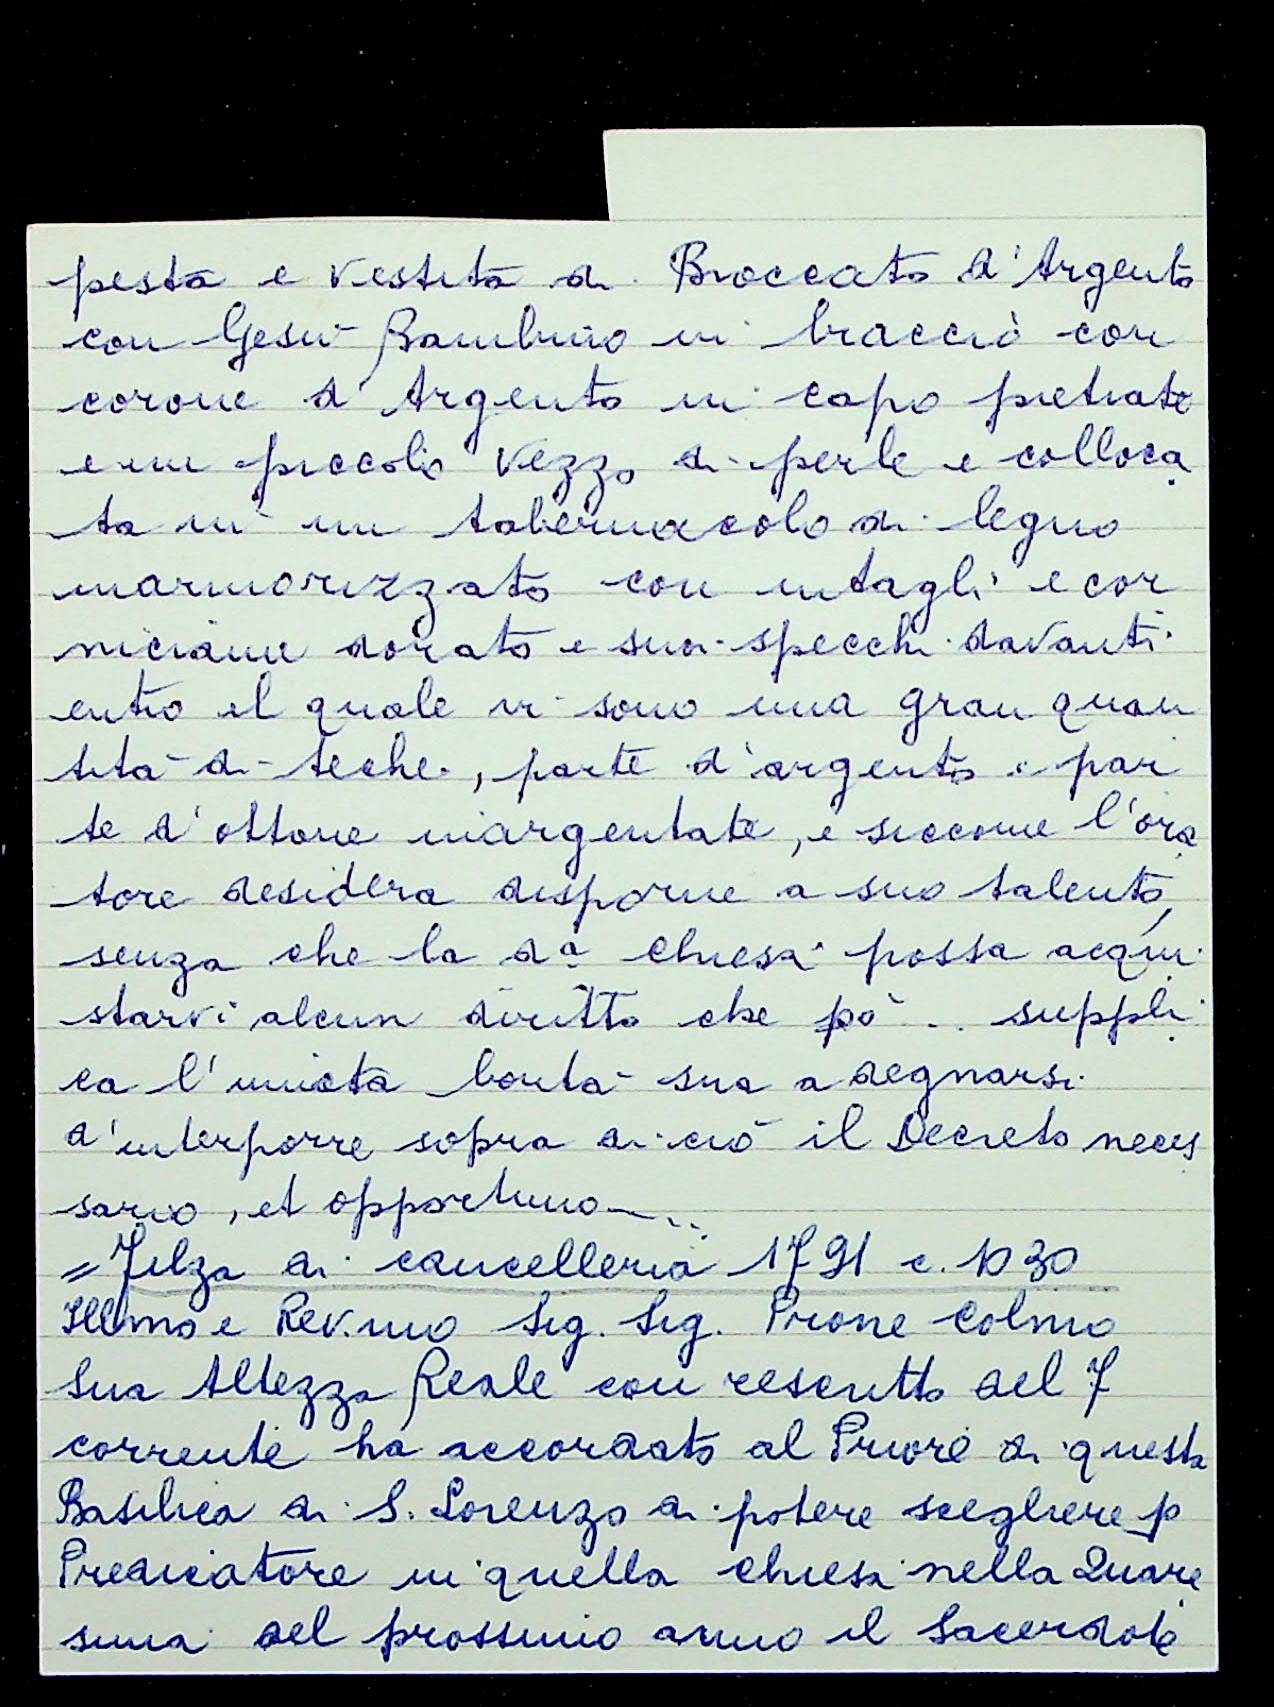 pesta e vestita di Broccato d'Argento
con Gesù Bambino in braccio con
corone d'Argento in capo pietrate
e un piccolo vezzo di perle e colloca
ta in un tabernacolo di legno
marmorizzato con intagli e cor
niciame dorato e suoi specchi davanti
entro il quale vi sono una gran quan
tità di teche, parte d'argento e par
te d'ottone inargentate, e siccome l'ora
tore desidera disporne a suo talento,
senza che la da chiesa possa acqui
starvi alcun diritto che però ... suppli
ca l'innata bontà sua a degnarsi
d'interporre sopra di ciò il Decreto neces
sario, et opportuno ...
= Filza di cancelleria 1791 c. 1030
Illmo e Rev.mo Sig. Sig. Prone Colmo
Sua Altezza Reale con rescritto del 7
corrente ha accordato al Priore di questa
Basilica di S. Lorenzo di potere scegliere p
Predicatore in quella chiesa nella Quare
sima del prossimo anno il Sacerdote